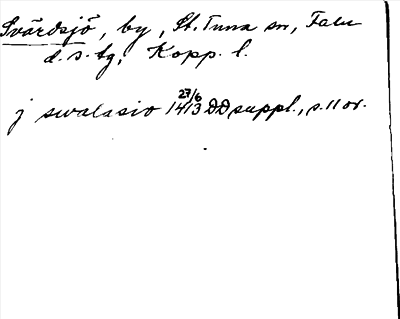 Svärdsjö, by, St. Tuna sn, Falu
d.s. tg, Kopp. l.
27/6
j swalasio 1413 DD suppl., s. 11 or.